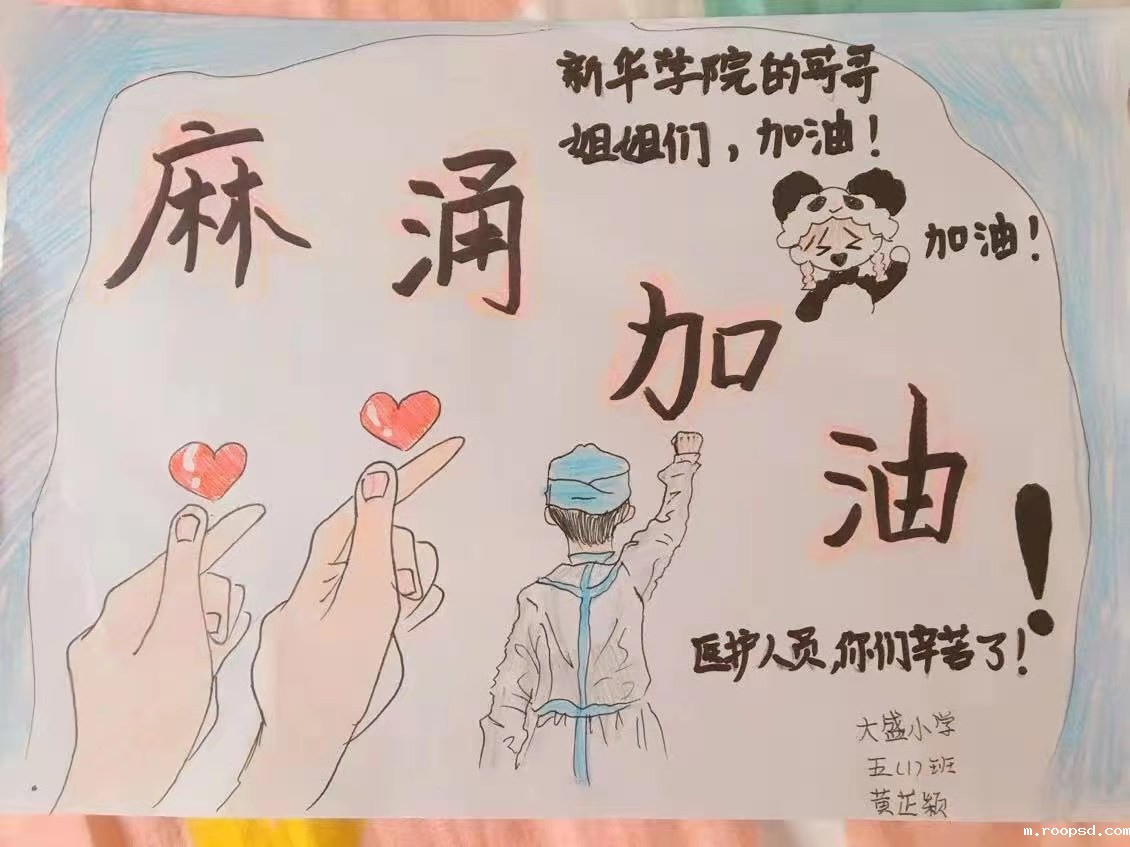 新华学院的哥哥
姐姐们，加油！
麻涌加油！
加油！
医护人员，你们辛苦了！
大盛小学
五（1）班
黄芷颖
m.roopsd.com